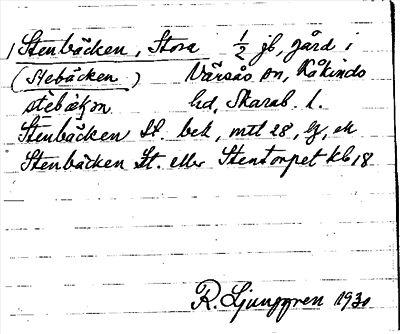 Stenbäcken, Stora ½ jb, gård i
(Stebäcken) Värsås sn, Kåkinds
hd, Skarab. l.
Stenbäcken St. bek, mtl 28, lj, ek
Stenbäcken St. eller Stentorpet kb 18
R. Ljunggren 1930